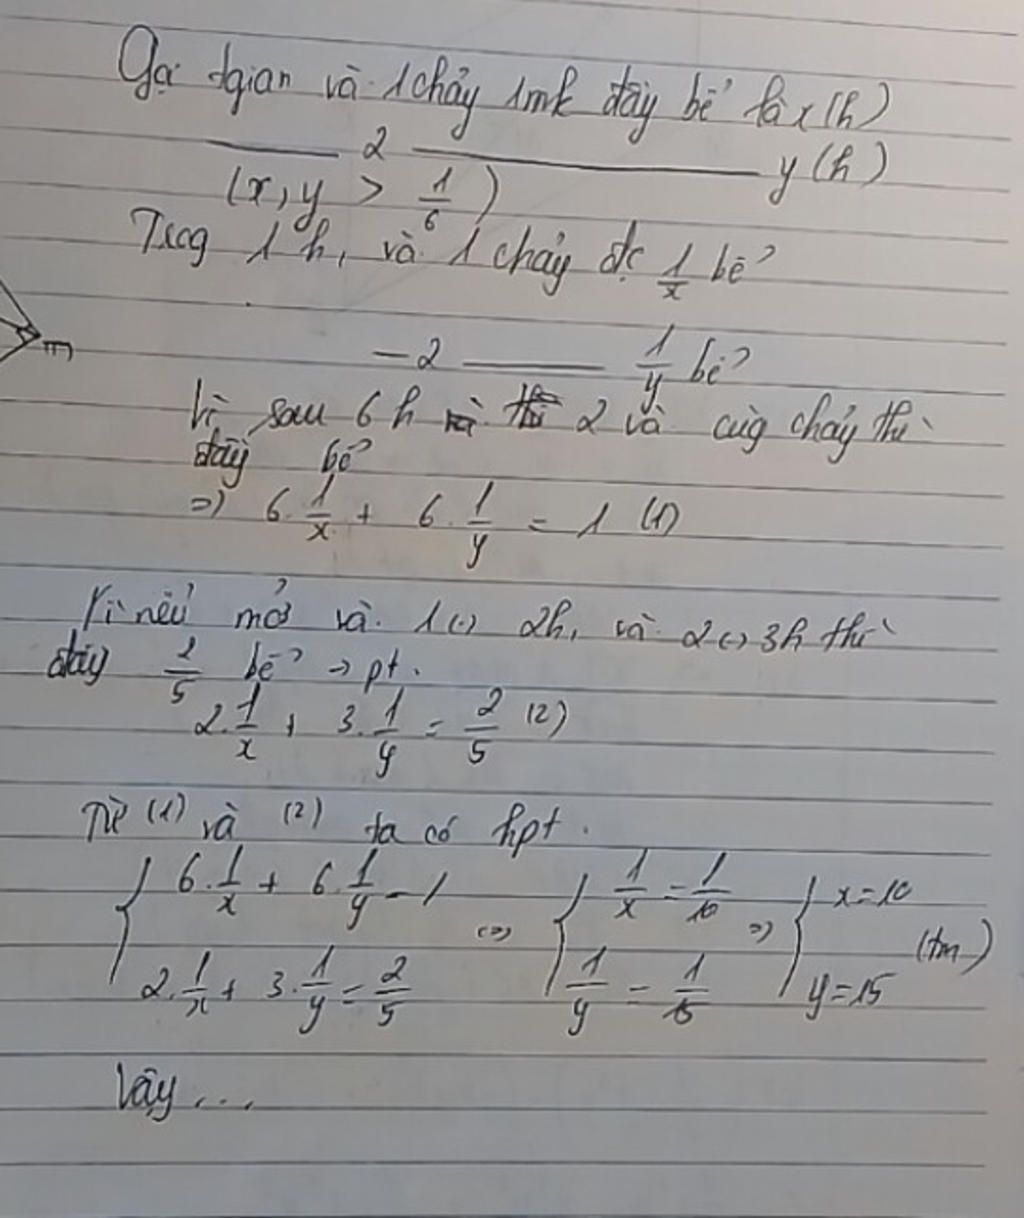 Gọi tgian vòi 1 chảy 1mk đầy bể là x (h)
— 2 — y (h)
(x, y > 1/6)
Trog 1 h, vòi 1 chảy đc 1/x bể
— 2 — 1/y bể
Vì sau 6 h 2 vòi cùg chảy thì
đầy bể
=> 6.1/x + 6.1/y = 1 (1)
Vì nếu mở vòi 1 (-) 2h, vòi 2 (-) 3h thì
đầy 2/5 bể → pt.
2.1/x + 3.1/y = 2/5 (2)
Từ (1) và (2) ta có hpt.
{ 6.1/x + 6.1/y = 1 <=> { 1/x = 1/10 => { x = 10 (tm)
2.1/x + 3.1/y = 2/5 1/y = 1/15 y = 15
Vậy ...